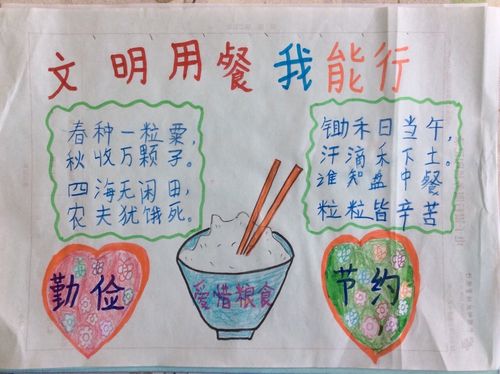 文明用餐我能行
春种一粒粟，
秋收万颗子。
四海无闲田，
农夫犹饿死。
锄禾日当午，
汗滴禾下土。
谁知盘中餐
粒粒皆辛苦
勤俭
爱惜粮食
节约